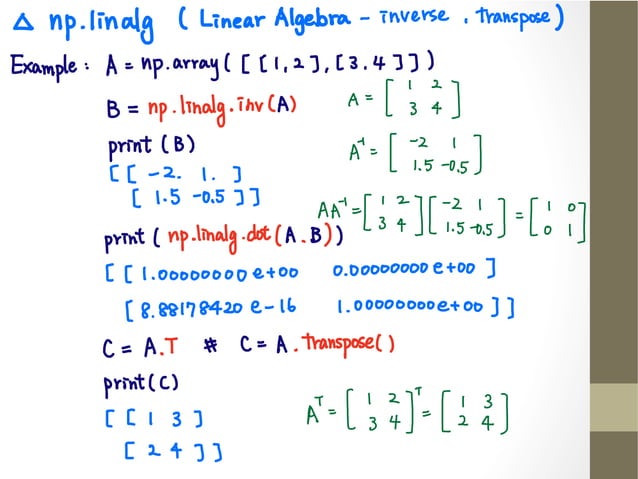 △ np.linalg ( Linear Algebra - inverse , transpose )
Example : A = np.array ( [ [ 1, 2 ] , [ 3. 4 ] ] )
B = np.linalg.inv (A)
A = [ 1 2
3 4 ]
print (B)
[ [ -2. 1. ]
[ 1.5 -0.5 ] ]
A⁻¹ = [ -2 1
1.5 -0.5 ]
AA⁻¹ = [ 1 2 [ -2 1 = [ 1 0
3 4 ] 1.5 -0.5 ] 0 1 ]
print ( np.linalg.dot ( A . B ) )
[ [ 1.00000000 e+00 0.00000000 e+00 ]
[ 8.88178420 e-16 1.00000000e+00 ] ]
C = A.T # C = A . transpose( )
print(C)
[ [ 1 3 ]
[ 2 4 ] ]
Aᵀ = [ 1 2 ᵀ = [ 1 3
3 4 ] 2 4 ]